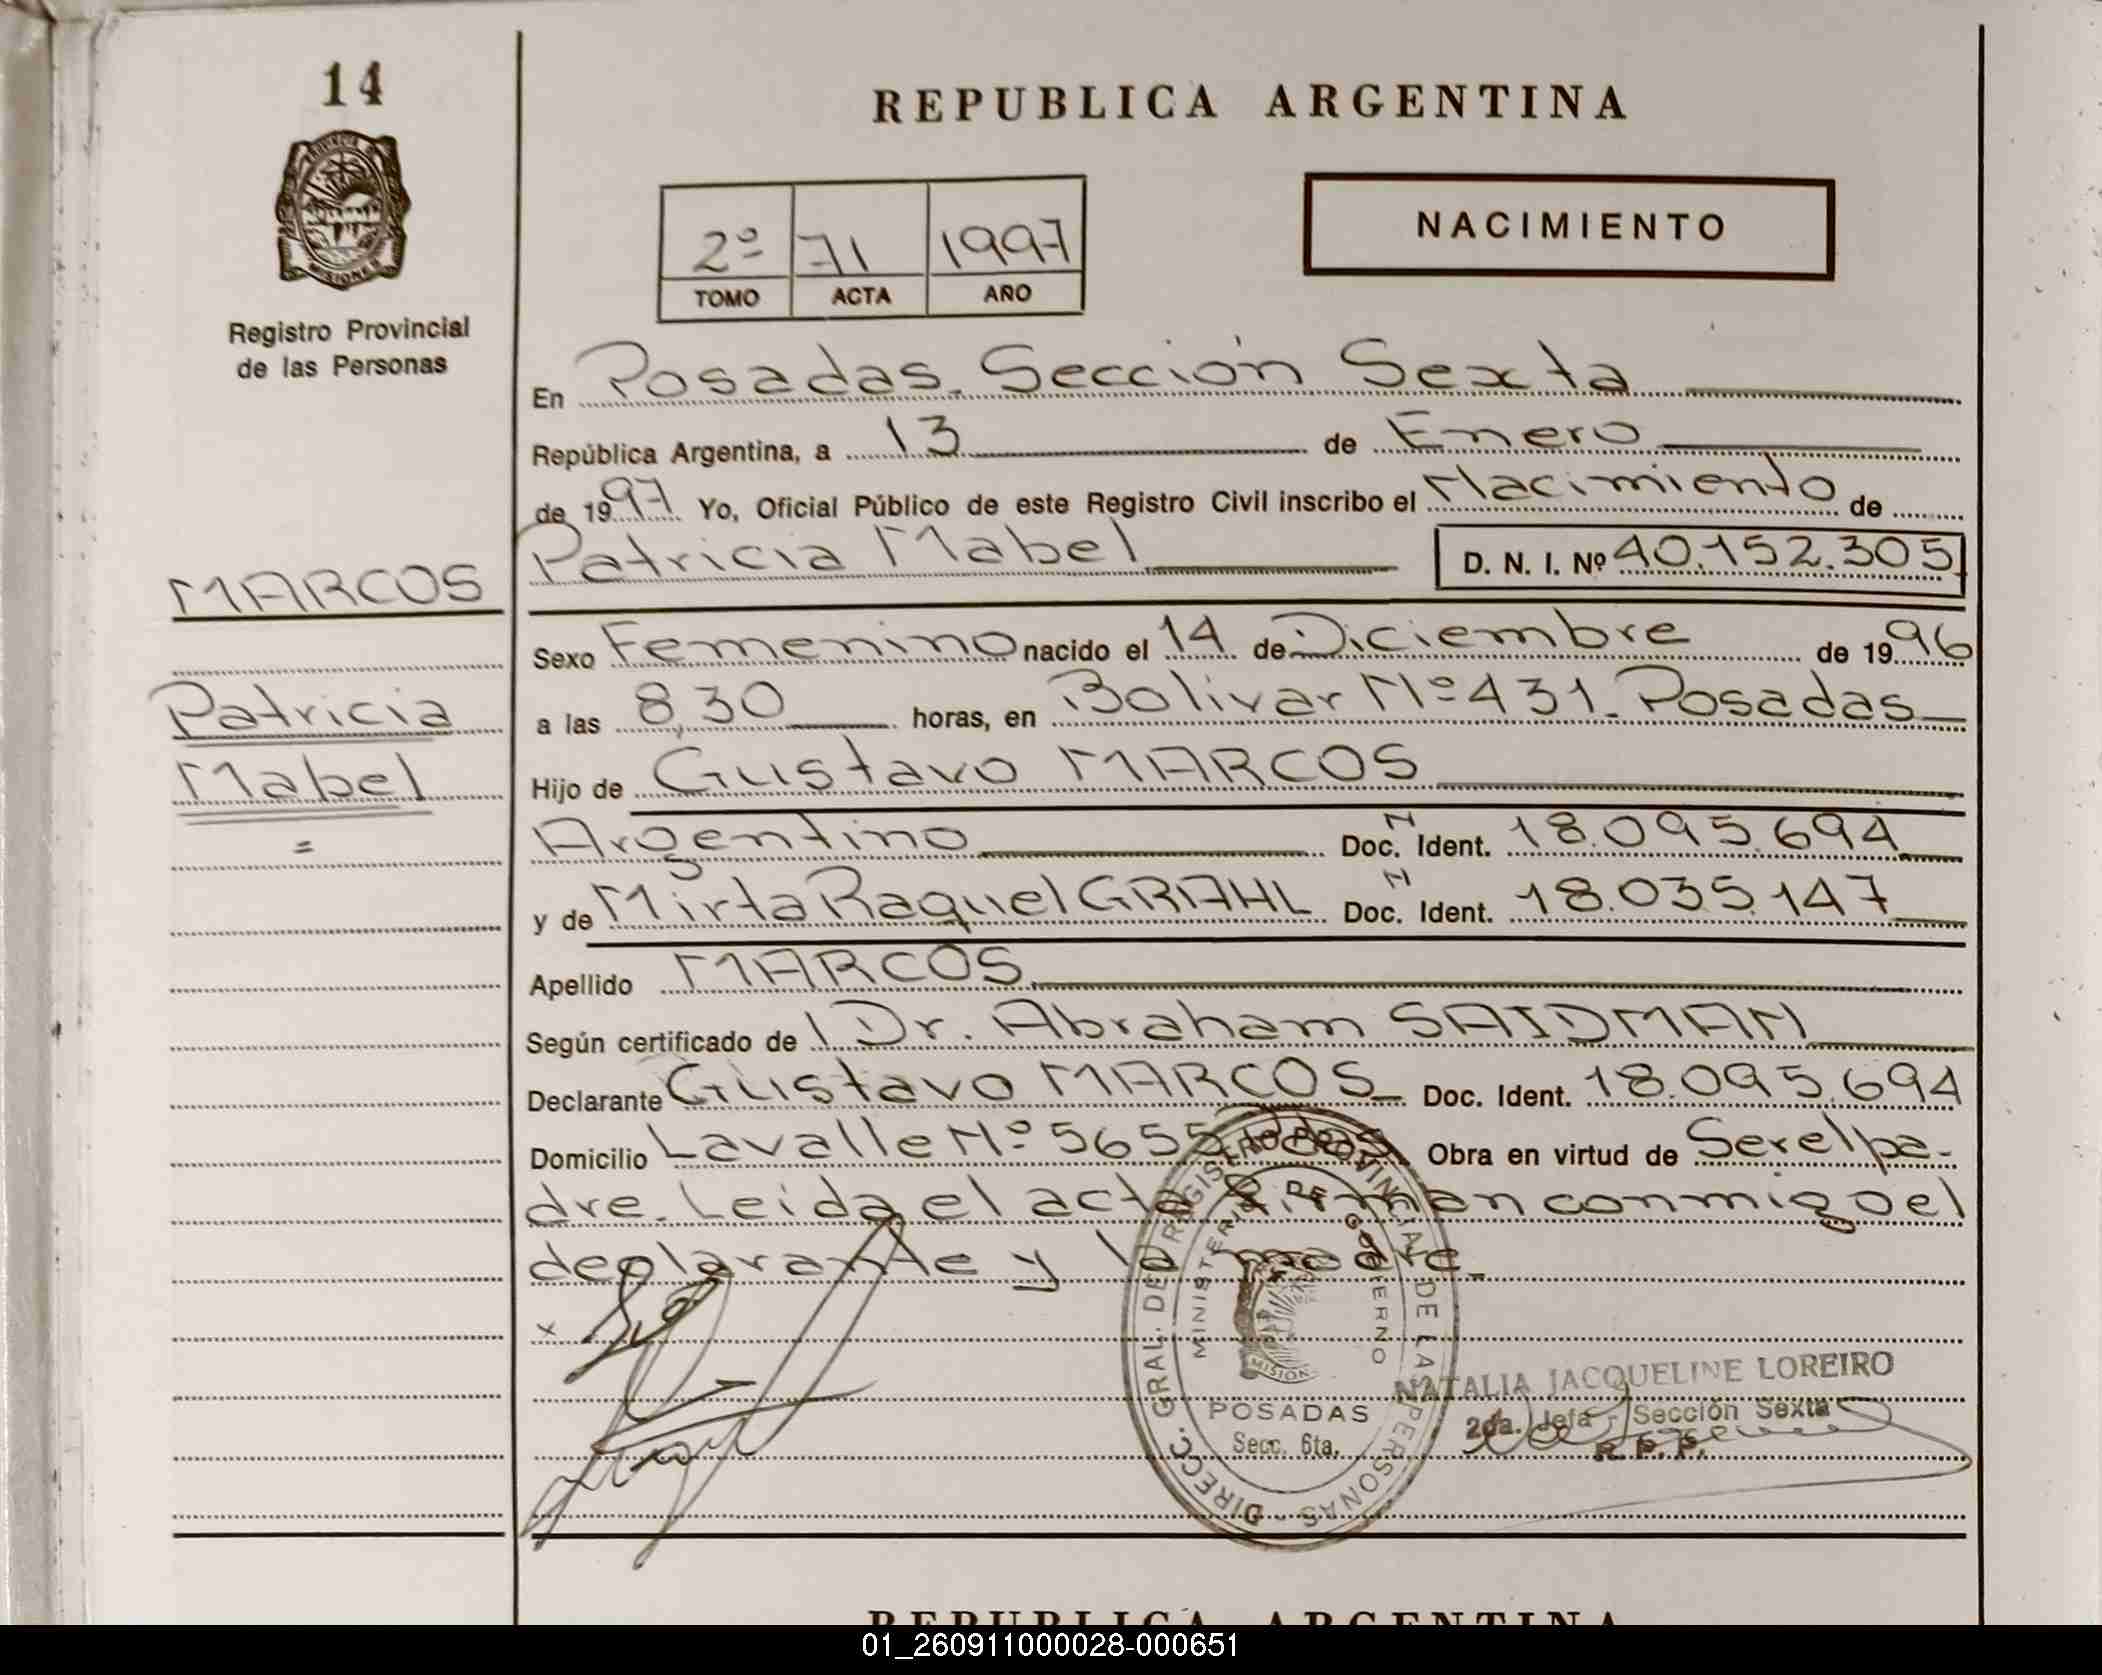 14
REPUBLICA ARGENTINA
PROVINCIA DE
MISIONES
Registro Provincial
de las Personas
2º 71 1997
TOMO ACTA AÑO
NACIMIENTO
En Posadas. Sección Sexta
República Argentina, a 13 de Enero
de 1997 Yo, Oficial Público de este Registro Civil inscribo el Nacimiento de
Patricia Mabel D. N. I. Nº 40.152.305
MARCOS
Patricia
Mabel
=
Sexo Femenino nacido el 14 de Diciembre de 1996
a las 8,30 horas, en Bolivar Nº 431. Posadas
Hijo de Gustavo MARCOS
Argentino Doc. N Ident. 18.095.694
y de Mirta Raquel GRAHL Doc. N Ident. 18.035.147
Apellido MARCOS
Según certificado de Dr. Abraham SAIDMAN
Declarante Gustavo MARCOS Doc. Ident. 18.095.694
Domicilio Lavalle Nº 5655 Pdas Obra en virtud de Ser el pa-
dre. Leida el acta firman conmigo el
declarante y la madre.
x
DIRECC. GRAL. DE REGISTRO PROVINCIAL DE LAS PERSONAS -
MINISTERIO DE GOBIERNO
POSADAS
Secc. 6ta.
NATALIA JACQUELINE LOREIRO
2da. Jefa - Sección Sexta
R. P. P.
REPUBLICA ARGENTINA
01_260911000028-000651